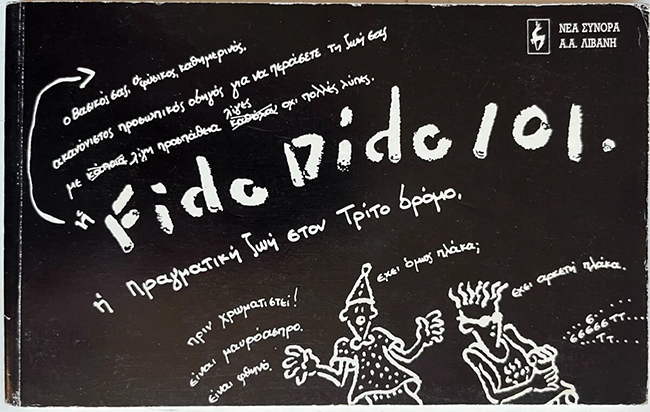 ΝΕΑ ΣΥΝΟΡΑ
Α.Α. ΛΙΒΑΝΗ
ο βασικός σας, ο φυσικός, καθημερινός,
ακανόνιστος προσωπικός οδηγός για να περάσετε τη ζωή σας
με κάποια λίγη προσπάθεια λίγες καθόλου όχι πολλές λύπες.
ή Fido Dido 101.
ή πραγματική ζωή στον Τρίτο δρόμο.
πριν χρωματιστεί!
είναι μαυρόασπρο.
είναι φθηνό.
έχει όμως πλάκα;
έχει αρκετή πλάκα.